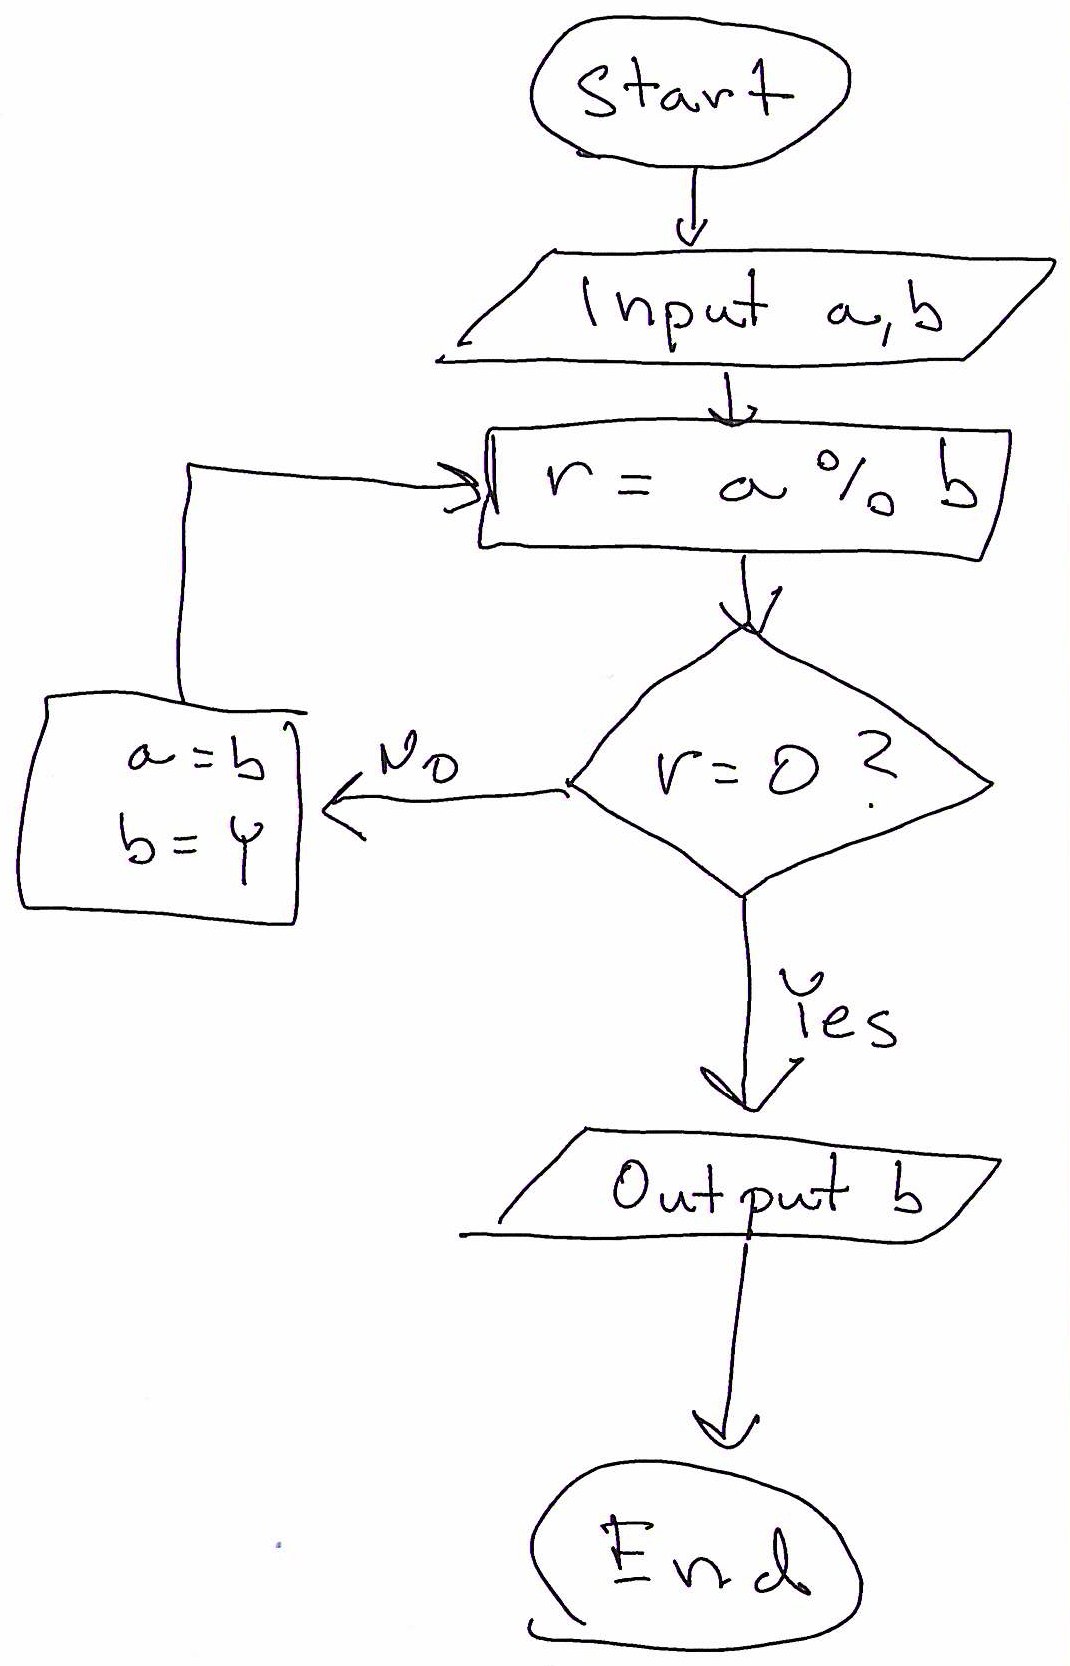 Start
Input a, b
r = a % b
r = 0 ?
No
a = b
b = r
Yes
Output b
End